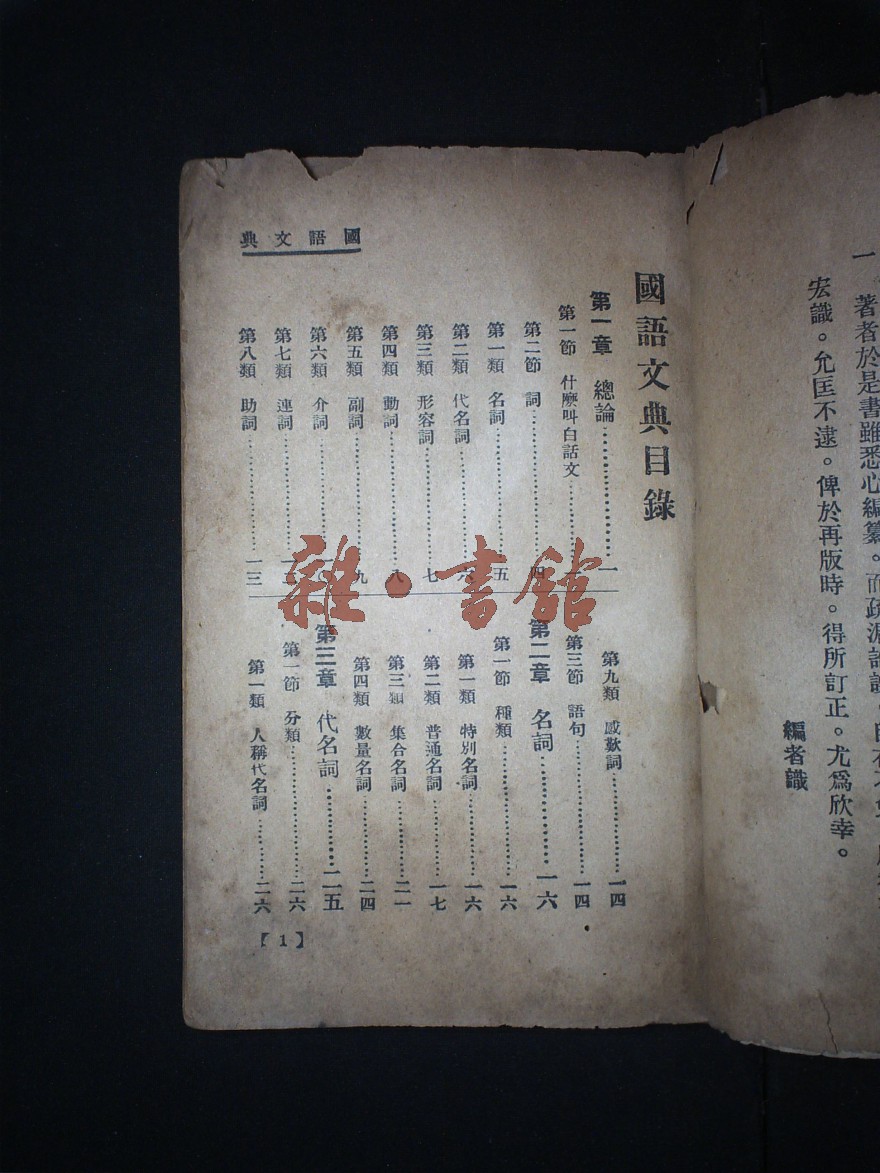 一、著者於是書雖悉心編纂。而疏漏
宏識。允匡不逮。俾於再版時。得所訂正。尤爲欣幸。
編者識
國語文典
國語文典目錄
第一章 總論…………一
第一節 什麽叫白話文…………
第二節 詞…………四
第一類 名詞…………五
第二類 代名詞…………六
第三類 形容詞…………七
第四類 動詞…………八
第五類 副詞…………九
第六類 介詞…………
第七類 連詞…………
第八類 助詞…………一三
第九類 感歎詞…………一四
第三節 語句…………一四
第二章 名詞…………一六
第一節 種類…………一六
第一類 特別名詞…………一六
第二類 普通名詞…………一七
第三類 集合名詞…………二一
第四類 數量名詞…………二四
第三章 代名詞…………二五
第一節 分類…………二六
第一類 人稱代名詞…………二六
【1】
雜·書館